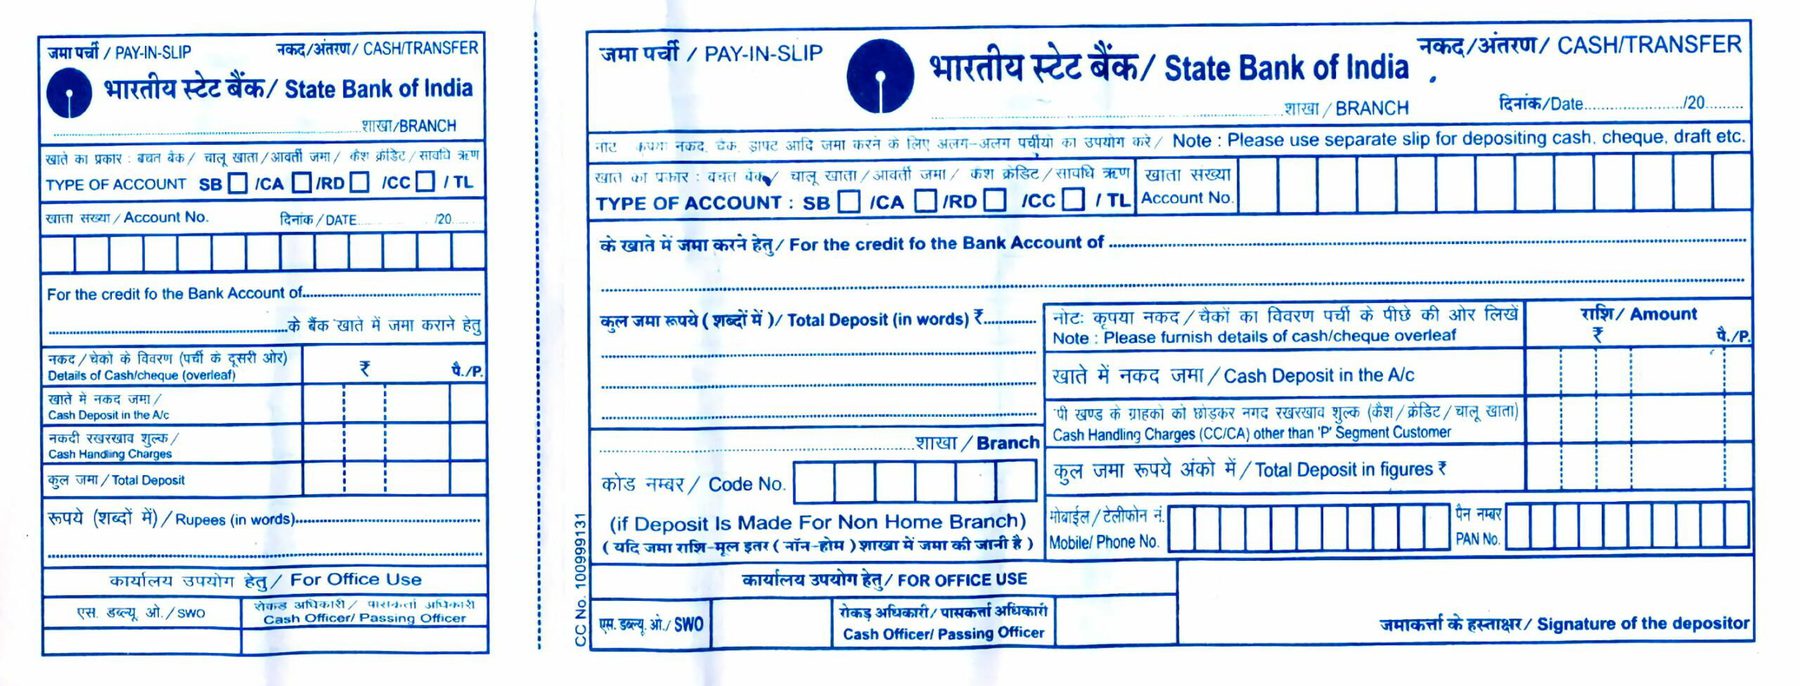 जमा पर्ची / PAY-IN-SLIP नकद/अंतरण/ CASH/TRANSFER
भारतीय स्टेट बैंक/ State Bank of India
शाखा/BRANCH
खाते का प्रकार : बचत बैंक/ चालू खाता/आवर्ती जमा/ कैश क्रेडिट/सावधि ऋण
TYPE OF ACCOUNT SB /CA /RD /CC / TL
खाता संख्या/Account No. दिनांक/DATE /20
For the credit fo the Bank Account of
के बैंक खाते में जमा कराने हेतु
नकद/चेकों के विवरण (पर्ची के दूसरी ओर) ₹ पै./P.
Details of Cash/cheque (overleaf)
खाते में नकद जमा/
Cash Deposit in the A/c
नकदी रखरखाव शुल्क/
Cash Handling Charges
कुल जमा/Total Deposit
रूपये (शब्दों में)/Rupees (in words)
कार्यालय उपयोग हेतु/ For Office Use
एस. डब्ल्यू. ओ./SWO रोकड अधिकारी/ पासकर्त्ता अधिकारी
Cash Officer/ Passing Officer
CC No. 100999131
जमा पर्ची / PAY-IN-SLIP नकद/अंतरण/ CASH/TRANSFER
भारतीय स्टेट बैंक/ State Bank of India
शाखा/BRANCH दिनांक/Date /20
नोट कृपया नकद, चेक, ड्राफ्ट आदि जमा करने के लिए अलग-अलग पर्चीयो का उपयोग करे/ Note : Please use separate slip for depositing cash, cheque, draft etc.
खाते का प्रकार : बचत बैंक/ चालू खाता/आवर्ती जमा/ कैश क्रेडिट/सावधि ऋण खाता संख्या
TYPE OF ACCOUNT : SB /CA /RD /CC / TL Account No.
के खाते में जमा करने हेतु/ For the credit fo the Bank Account of
कुल जमा रूपये (शब्दों में)/ Total Deposit (in words) ₹
शाखा/Branch
कोड नम्बर/ Code No.
(if Deposit Is Made For Non Home Branch)
(यदि जमा राशि-मूल इतर (नॉन-होम) शाखा में जमा की जानी है)
नोटः कृपया नकद/चेकों का विवरण पर्ची के पीछे की ओर लिखें राशि/ Amount
Note : Please furnish details of cash/cheque overleaf ₹ पै./P.
खाते में नकद जमा/Cash Deposit in the A/c
'पी खण्ड के ग्राहको को छोड़कर नगद रखरखाव शुल्क (कैश/क्रेडिट/चालू खाता)
Cash Handling Charges (CC/CA) other than 'P' Segment Customer
कुल जमा रूपये अंको में/Total Deposit in figures ₹
मोबाईल/टेलीफोन नं. पैन नम्बर
Mobile/ Phone No. PAN No.
कार्यालय उपयोग हेतु/ FOR OFFICE USE
एस. डब्ल्यू. ओ./ SWO रोकड़ अधिकारी/ पासकर्त्ता अधिकारी
Cash Officer/ Passing Officer
जमाकर्त्ता के हस्ताक्षर/ Signature of the depositor